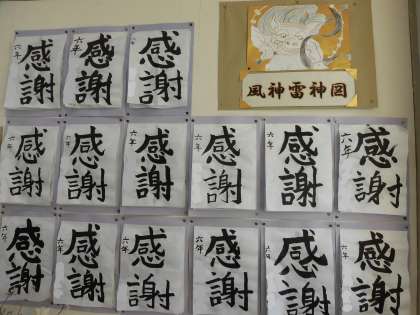 六年 感謝
六年 感謝
六年 感謝
風神雷神図
六年 感謝
六年 感謝
六年 感謝
六年 感謝
六年 感謝
六年 感謝
六年 感謝
六年 感謝
六年 感謝
六年 感謝
六年 感謝
六年 感謝